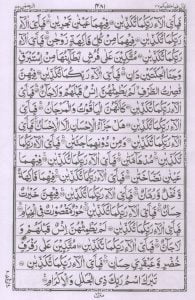 فَبِاَيِّ اٰلَآءِ رَبِّكُمَا تُكَذِّبٰنِ فِيْهِمَا عَيْنٰنِ تَجْرِيٰنِ فَبِاَيِّ
اٰلَآءِ رَبِّكُمَا تُكَذِّبٰنِ فِيْهِمَا مِنْ كُلِّ فَاكِهَةٍ زَوْجٰنِ فَبِاَيِّ
اٰلَآءِ رَبِّكُمَا تُكَذِّبٰنِ مُتَّكِئِيْنَ عَلٰى فُرُشٍۭ بَطَآئِنُهَا مِنْ اِسْتَبْرَقٍ
وَجَنَا الْجَنَّتَيْنِ دَانٍ فَبِاَيِّ اٰلَآءِ رَبِّكُمَا تُكَذِّبٰنِ فِيْهِنَّ
قٰصِرٰتُ الطَّرْفِ لَمْ يَطْمِثْهُنَّ اِنْسٌ قَبْلَهُمْ وَلَا جَآنٌّ فَبِاَيِّ
اٰلَآءِ رَبِّكُمَا تُكَذِّبٰنِ كَاَنَّهُنَّ الْيَاقُوْتُ وَالْمَرْجَانُ فَبِاَيِّ
اٰلَآءِ رَبِّكُمَا تُكَذِّبٰنِ هَلْ جَزَآءُ الْاِحْسَانِ اِلَّا الْاِحْسَانُ فَبِاَيِّ
اٰلَآءِ رَبِّكُمَا تُكَذِّبٰنِ وَمِنْ دُوْنِهِمَا جَنَّتٰنِ فَبِاَيِّ اٰلَآءِ رَبِّكُمَا
تُكَذِّبٰنِ مُدْهَآمَّتٰنِ فَبِاَيِّ اٰلَآءِ رَبِّكُمَا تُكَذِّبٰنِ فِيْهِمَا
عَيْنٰنِ نَضَّاخَتٰنِ فَبِاَيِّ اٰلَآءِ رَبِّكُمَا تُكَذِّبٰنِ فِيْهِمَا فَاكِهَةٌ
وَّنَخْلٌ وَّرُمَّانٌ فَبِاَيِّ اٰلَآءِ رَبِّكُمَا تُكَذِّبٰنِ فِيْهِنَّ خَيْرٰتٌ
حِسَانٌ فَبِاَيِّ اٰلَآءِ رَبِّكُمَا تُكَذِّبٰنِ حُوْرٌ مَّقْصُوْرٰتٌ فِى الْخِيَامِ
فَبِاَيِّ اٰلَآءِ رَبِّكُمَا تُكَذِّبٰنِ لَمْ يَطْمِثْهُنَّ اِنْسٌ قَبْلَهُمْ وَ
لَا جَآنٌّ فَبِاَيِّ اٰلَآءِ رَبِّكُمَا تُكَذِّبٰنِ مُتَّكِئِيْنَ عَلٰى رَفْرَفٍ
خُضْرٍ وَّعَبْقَرِيٍّ حِسَانٍ فَبِاَيِّ اٰلَآءِ رَبِّكُمَا تُكَذِّبٰنِ
تَبٰرَكَ اسْمُ رَبِّكَ ذِى الْجَلٰلِ وَالْاِكْرَامِ